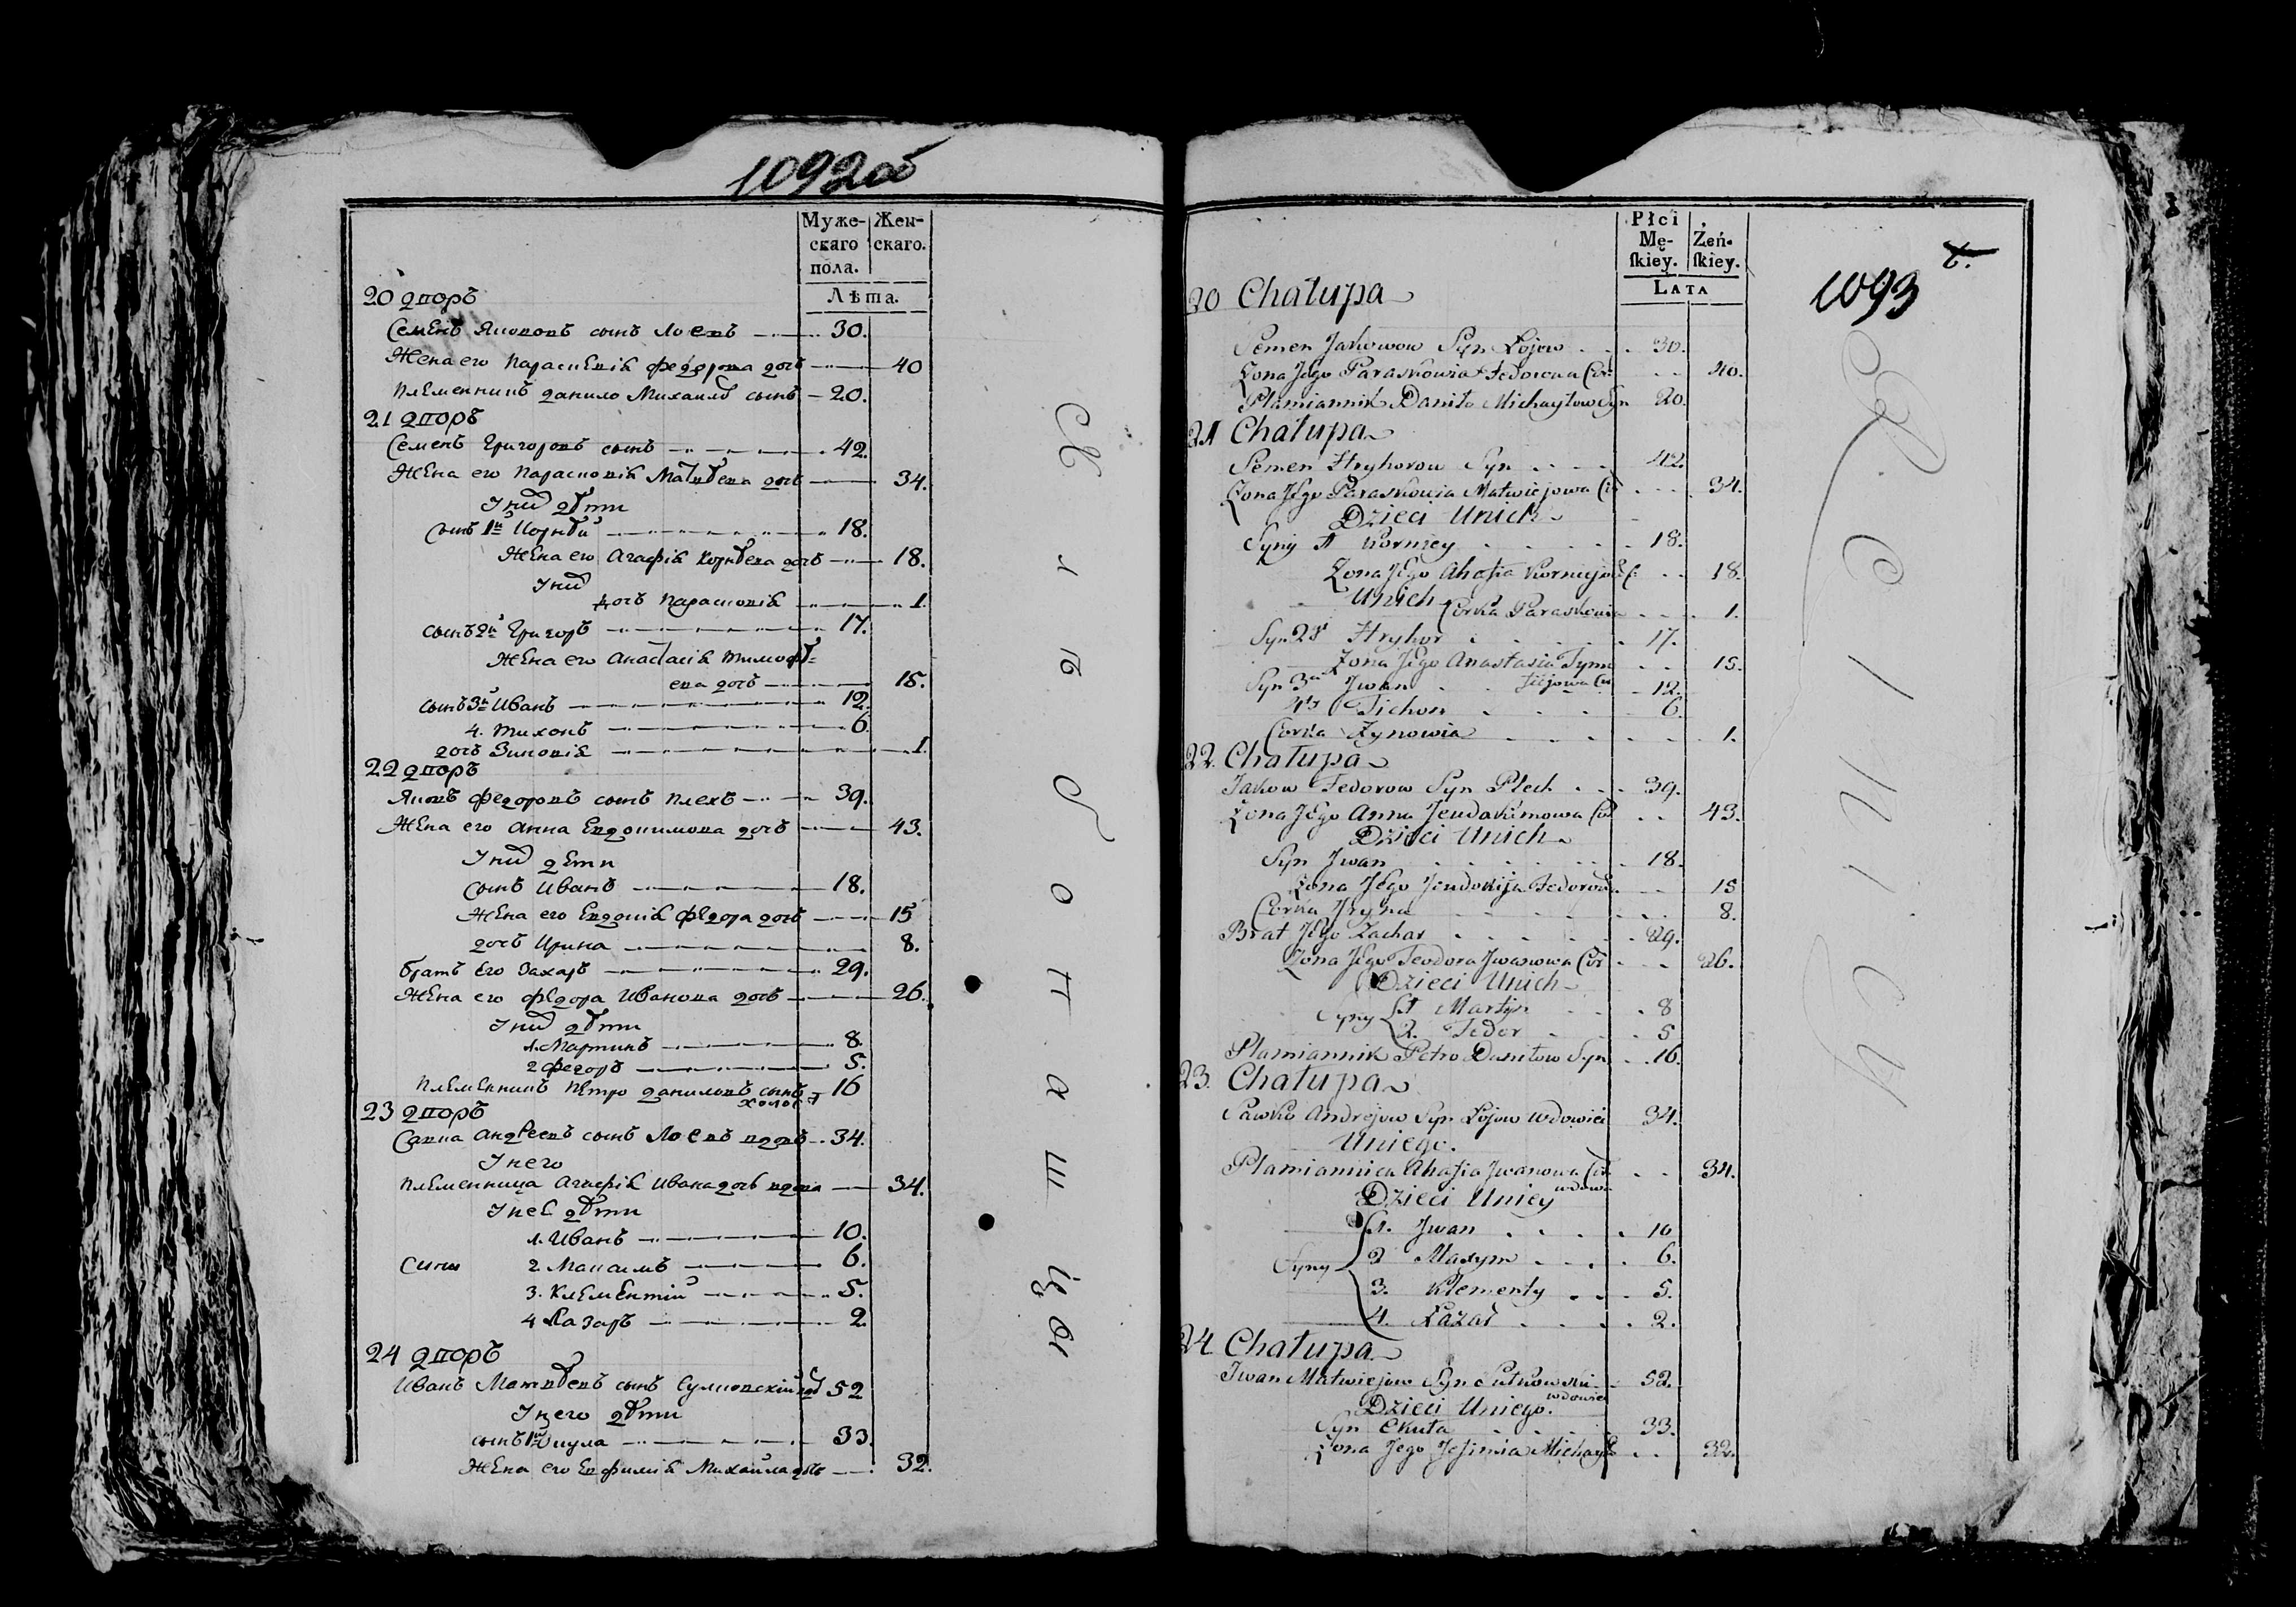 1092об
Муже-
скаго
пола.
Жен-
скаго.
Лѣта.
20 дворъ
Семенъ Якововъ сынъ Лоевъ 30.
Жена его Парасковія Федорова дочь 40
Племенникъ Данило Михаиловъ сынъ 20.
21 дворъ
Семенъ Григоровъ сынъ 42.
Жена его Парасковія Матвѣева дочь 34.
У них дѣти
Сынъ 1й Корнѣй 18.
Жена его Агафія Корнѣева дочь 18.
У них
дочь Парасковія 1.
сынъ 2й Григоръ 17.
Жена его Анастасія Тимофѣ=
ева дочь 15.
сынъ 3й Иванъ 12.
4. Тихонъ 6.
дочь Зиновія 1.
22 дворъ
Яковъ Федоровъ сынъ Плехъ 39.
Жена его Анна Евдокимова дочь 43.
У них дети
сынъ Иванъ 18.
Жена его Евдокія Федора дочь 15
дочь Ирина 8.
братъ Его Захаръ 29.
Жена его Федора Иванова дочь 26.
У них дѣти
1. Мартинъ 8.
2 Федоръ 5.
Племенникъ Петро Даниловъ сынъ 16
холос
23 дворъ
Савка Андреевъ сынъ Лоевъ вдовъ 34.
У него
Племенница Агафія Ивана дочь вдова 34.
У неё дѣти
1. Иванъ 10.
Сины 2. Максимъ 6.
3. Клементій 5.
4 Лазаръ 2.
24 дворъ
Иванъ Матвѣевъ сынъ 52
У него дѣти
сынъ 1й Окула 33.
Жена его Евфимія Михайла дочь 32.
С л ъ о т ш ы
Płci
Mę-
skiey.
Żeń-
skiey.
LATA
1093
20 Chałupa
Semen Jakowow Syn Łojow 30.
Zona Jego Paraskowia Fedorowa Cor: 40.
Płamiannik Daniło Michayłow Syn 20.
21 Chałupa
Semen Hryhorow Syn 42.
Zona Jego Paraskowia Matwiejowa Cor 34.
Dzieci Unich
Syny 1 Korniey 18.
Zona Jego Ahafia Korniejow C: 18.
Unich Corka Paraskowia 1.
Syn 2gi Hryhor 17.
Zona Jego Anastasia Tymo 15.
fiejowa Cor
Syn 3ci Jwan 12.
4ty Tichon 6.
Corka Zynowia 1.
22. Chałupa
Jakow Fedorow Syn Plech 39.
Zona Jego Anna Jeudakimowa Cor 43.
Dzieci Unich
Syn Jwan 18.
Zona Jego Jeudokija Fedorow 15
Corka Jryna 8.
Brat Jego Zachar 29.
Zona Jego Teodora Jwanowa Cor 26.
Dzieci Unich
Syny 1 Martyn 8
2. Fedor 5
Płamiannik Petro Daniłow Syn 16.
23. Chałupa
Sawka Andrejow Syn Łojow Wdowiec 34.
Uniego.
Płamiannica Ahafia Jwanowa Cor 34.
wdowa
Dzieci Uniey
1. Jwan 10
Syny 2 Maxym 6.
3. Klementy 5.
4. Łazar 2.
24. Chałupa
Jwan Matwiejow Syn Sutkowski 52.
wdowiec
Dzieci Uniego.
Syn Okuła 33.
Zona Jego Jefimia Michaył 32.